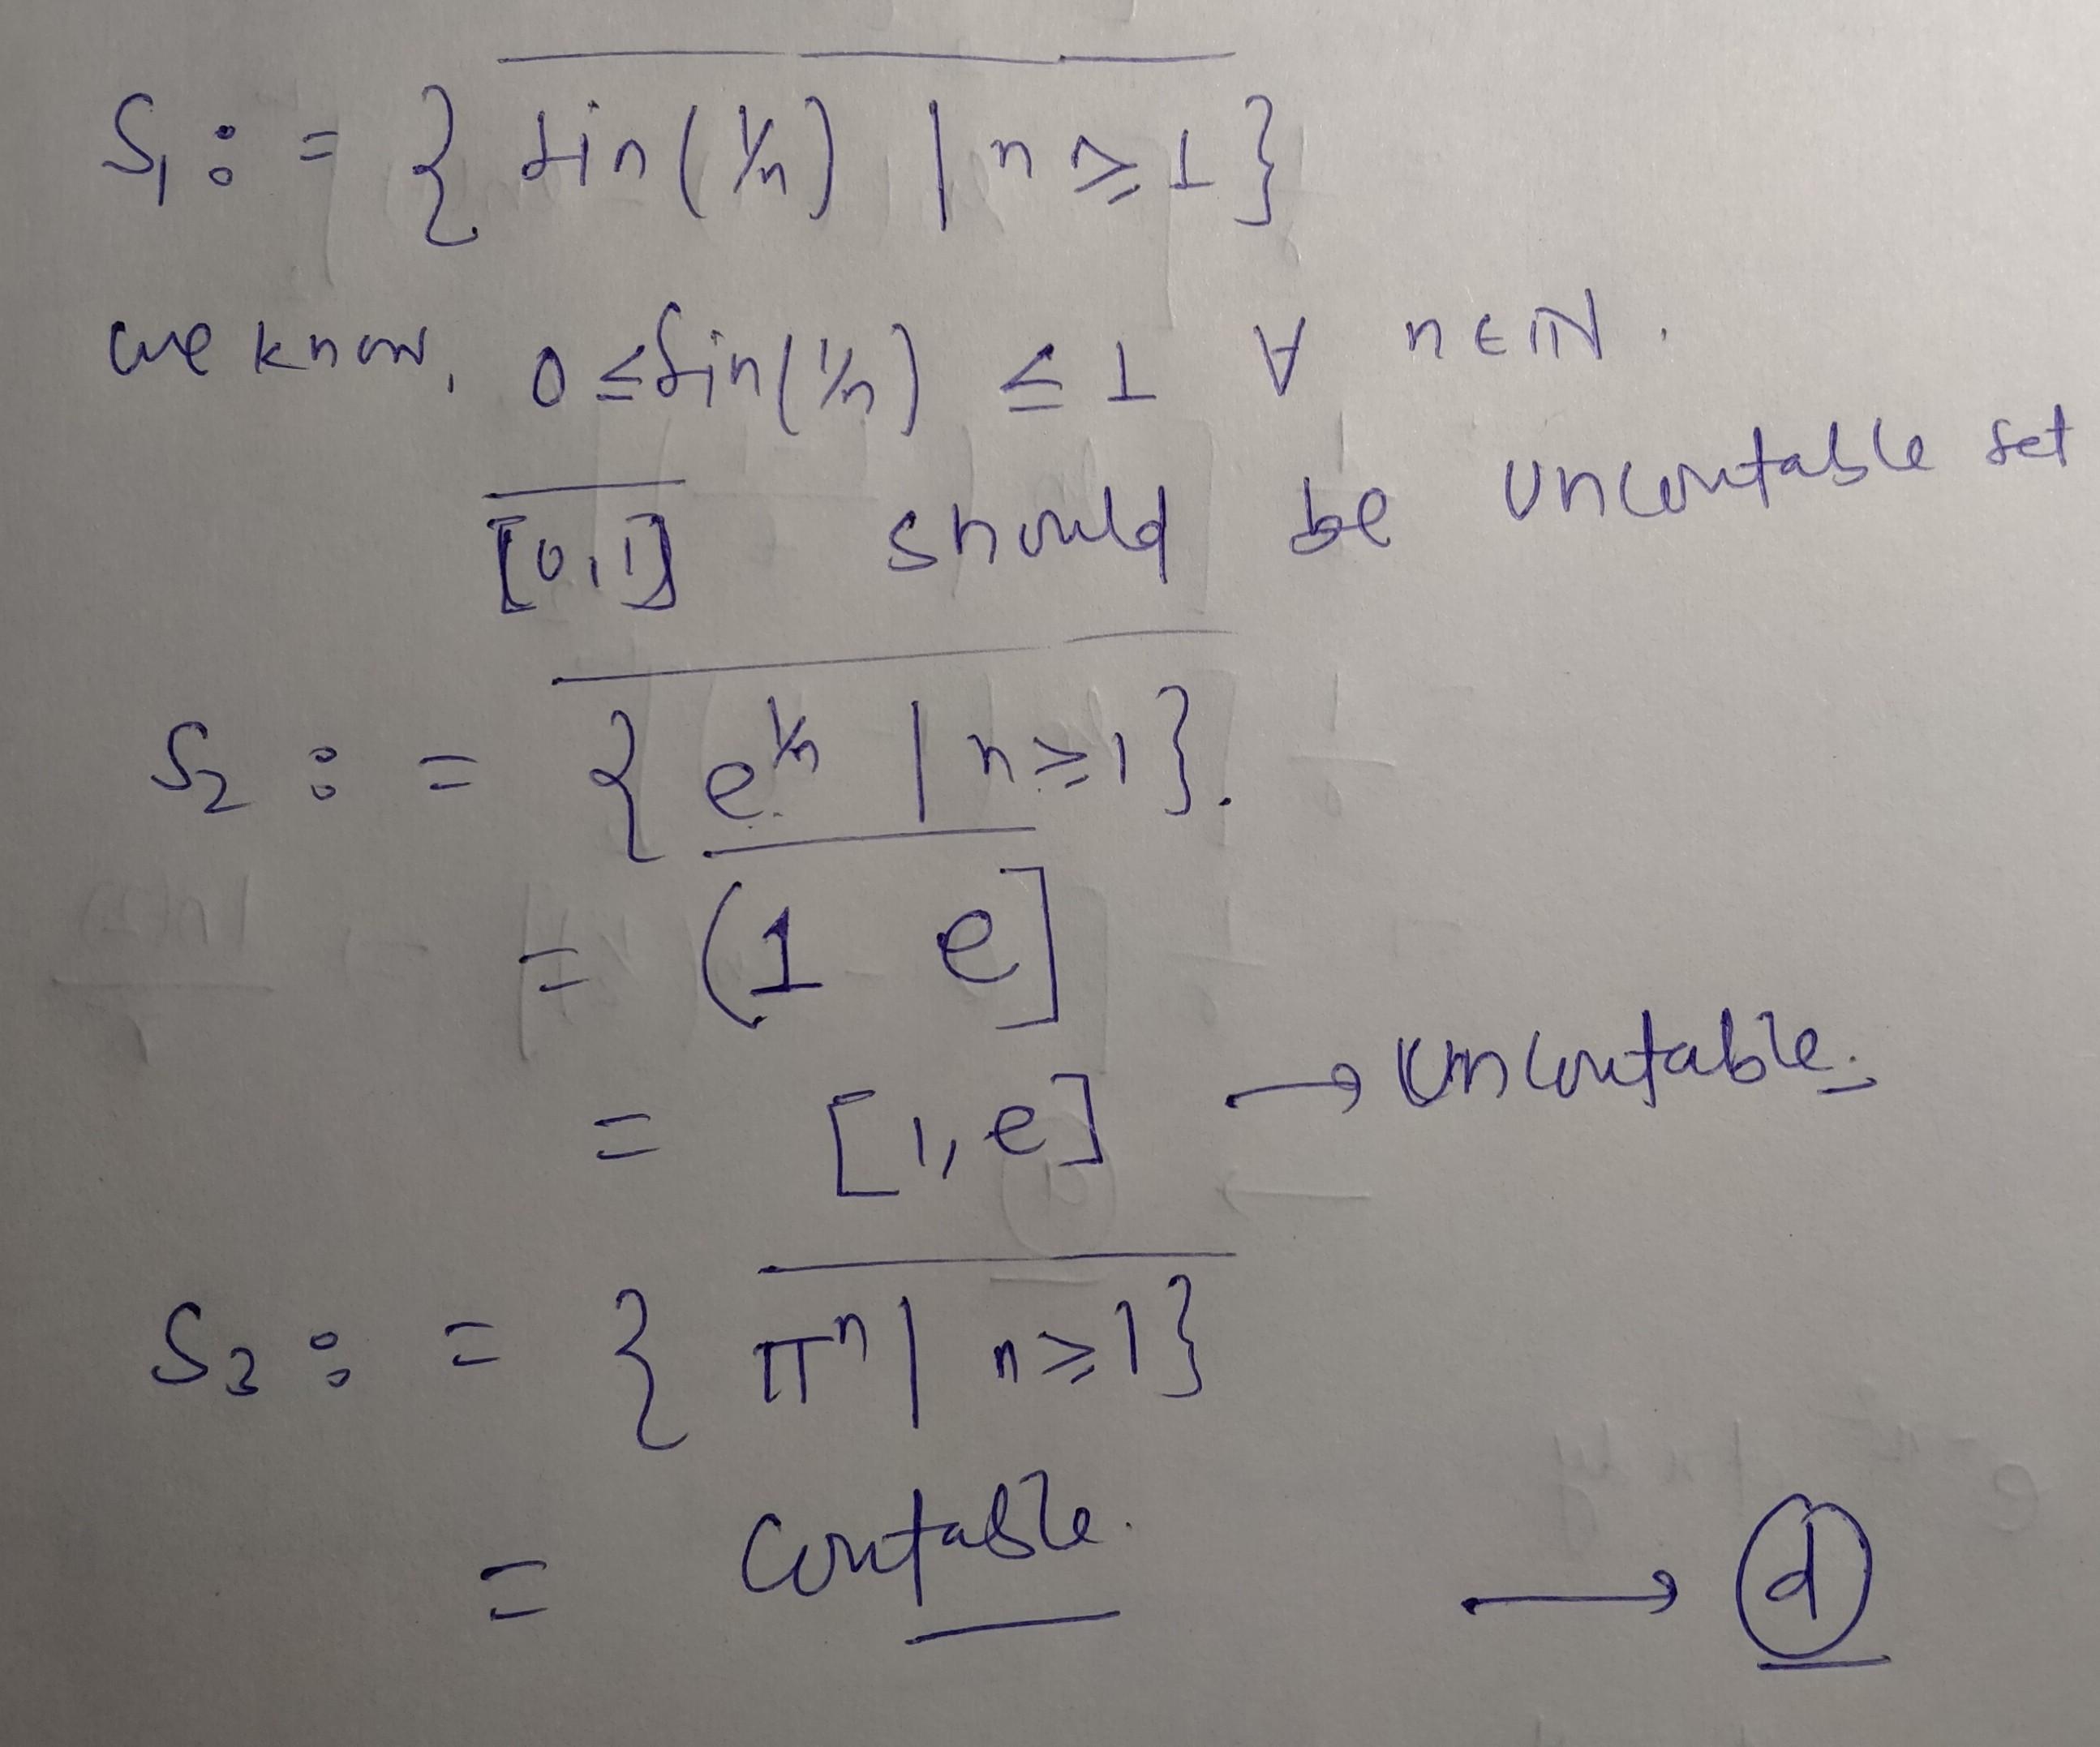 S₁ := { sin(1/n) | n ≥ 1 }
we know, 0 ≤ sin(1/n) ≤ 1 ∀ n ∈ ℕ.
[0,1] should be uncontable set
S₂ := { e^{1/n} | n ≥ 1 }.
= (1 e]
= [1, e] → uncontable.
S₃ := { πⁿ | n ≥ 1 }
= contable. → d